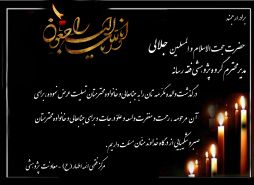 برادر ارجمند
انا لله و انا الیه راجعون
حضرت حجت الاسلام و المسلمین جلالی
مدیر محترم گروه پژوهشی فقه رسانه
درگذشت والده مکرمه تان را به جنابعالی و خانواده محترمتان تسلیت عرض نموده، برای
آن مرحومه رحمت و مغفرت واسعه و علو درجات و برای جنابعالی و خانواده محترمتان
صبر و شکیبایی از درگاه خداوند منان مسئلت داریم.
مرکز فقهی ائمه اطهار (ع) - معاونت پژوهشی